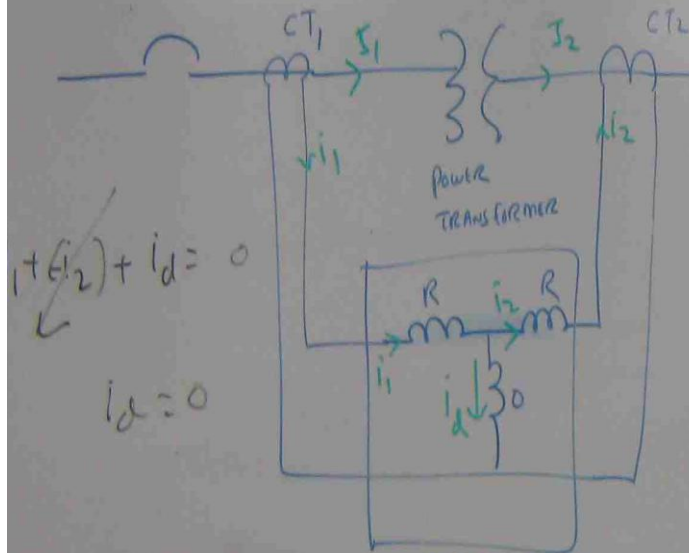 CT1
I1
I2
CT2
i1
i2
POWER
TRANSFORMER
1 + (-i2) + id = 0
R
i2
R
i1
id
O
id = 0